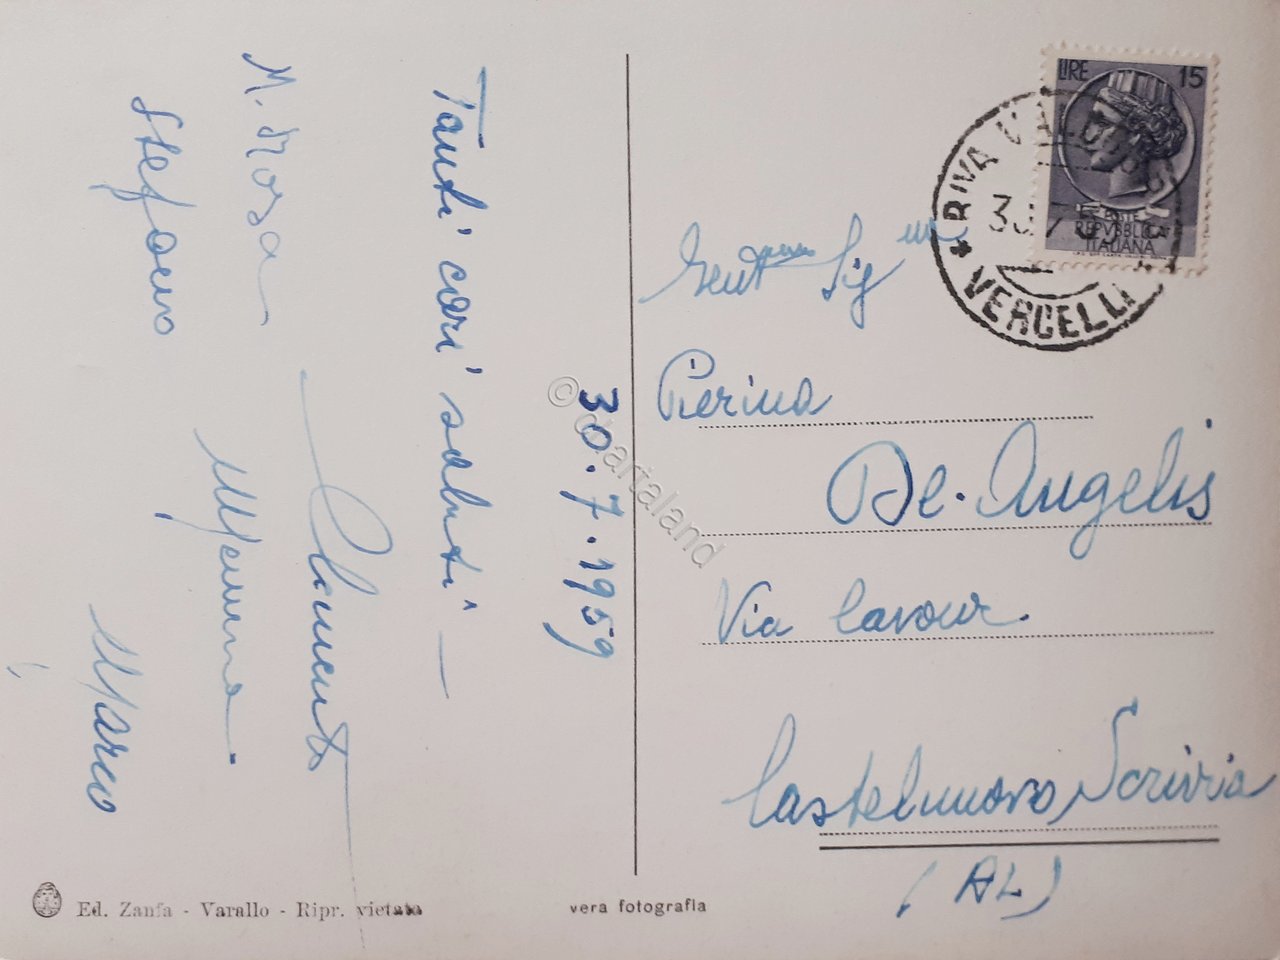 30.7.1959
Tanti cari saluti —
M. Rosa
Clemente
Stefano
Memma
Marco
Gent.ma Sig.na
Pierina
De-Angelis
Via Cavour.
Castelnuovo Scrivia
(AL)
LIRE 15
POSTE
REPVBBLICA
ITALIANA
RIVA VALDOBBIA
30.7
VERCELLI
Ed. Zanfa - Varallo - Ripr. vietata
vera fotografia
© chartaland